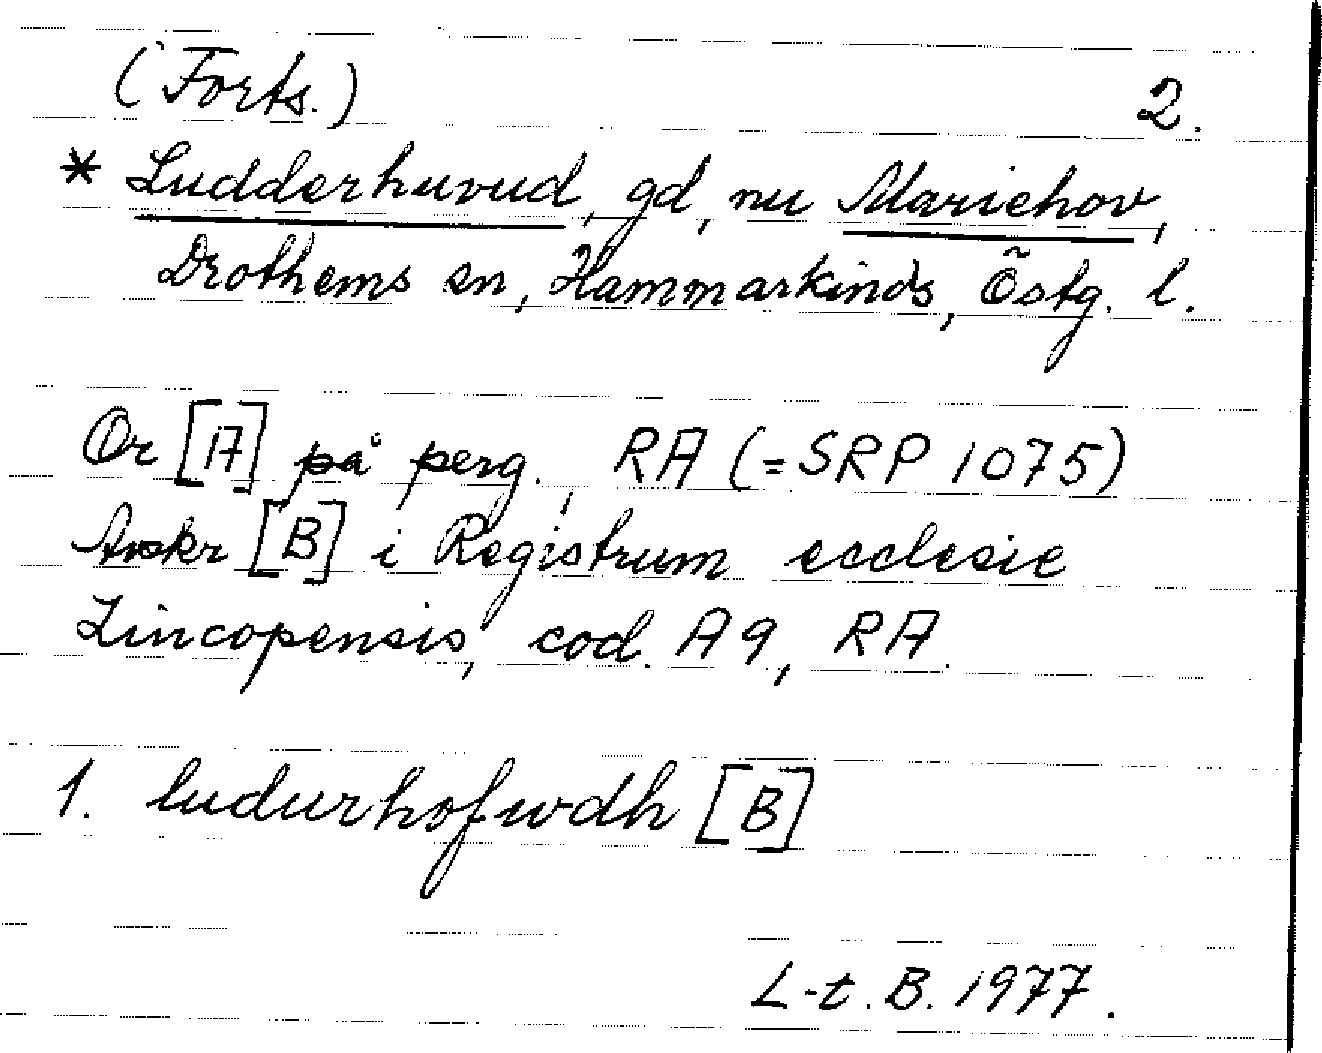 (Forts.) 2.
* Ludderhuvud, gd, nu Mariehov,
Drothems sn, Hammarkinds, Östg. l.
Or [A] på perg., RA (=SRP 1075)
Avskr [B] i Registrum ecclesie
Lincopensis, cod. A9, RA.
1. ludurhofwdh [B]
L-t. B. 1977.